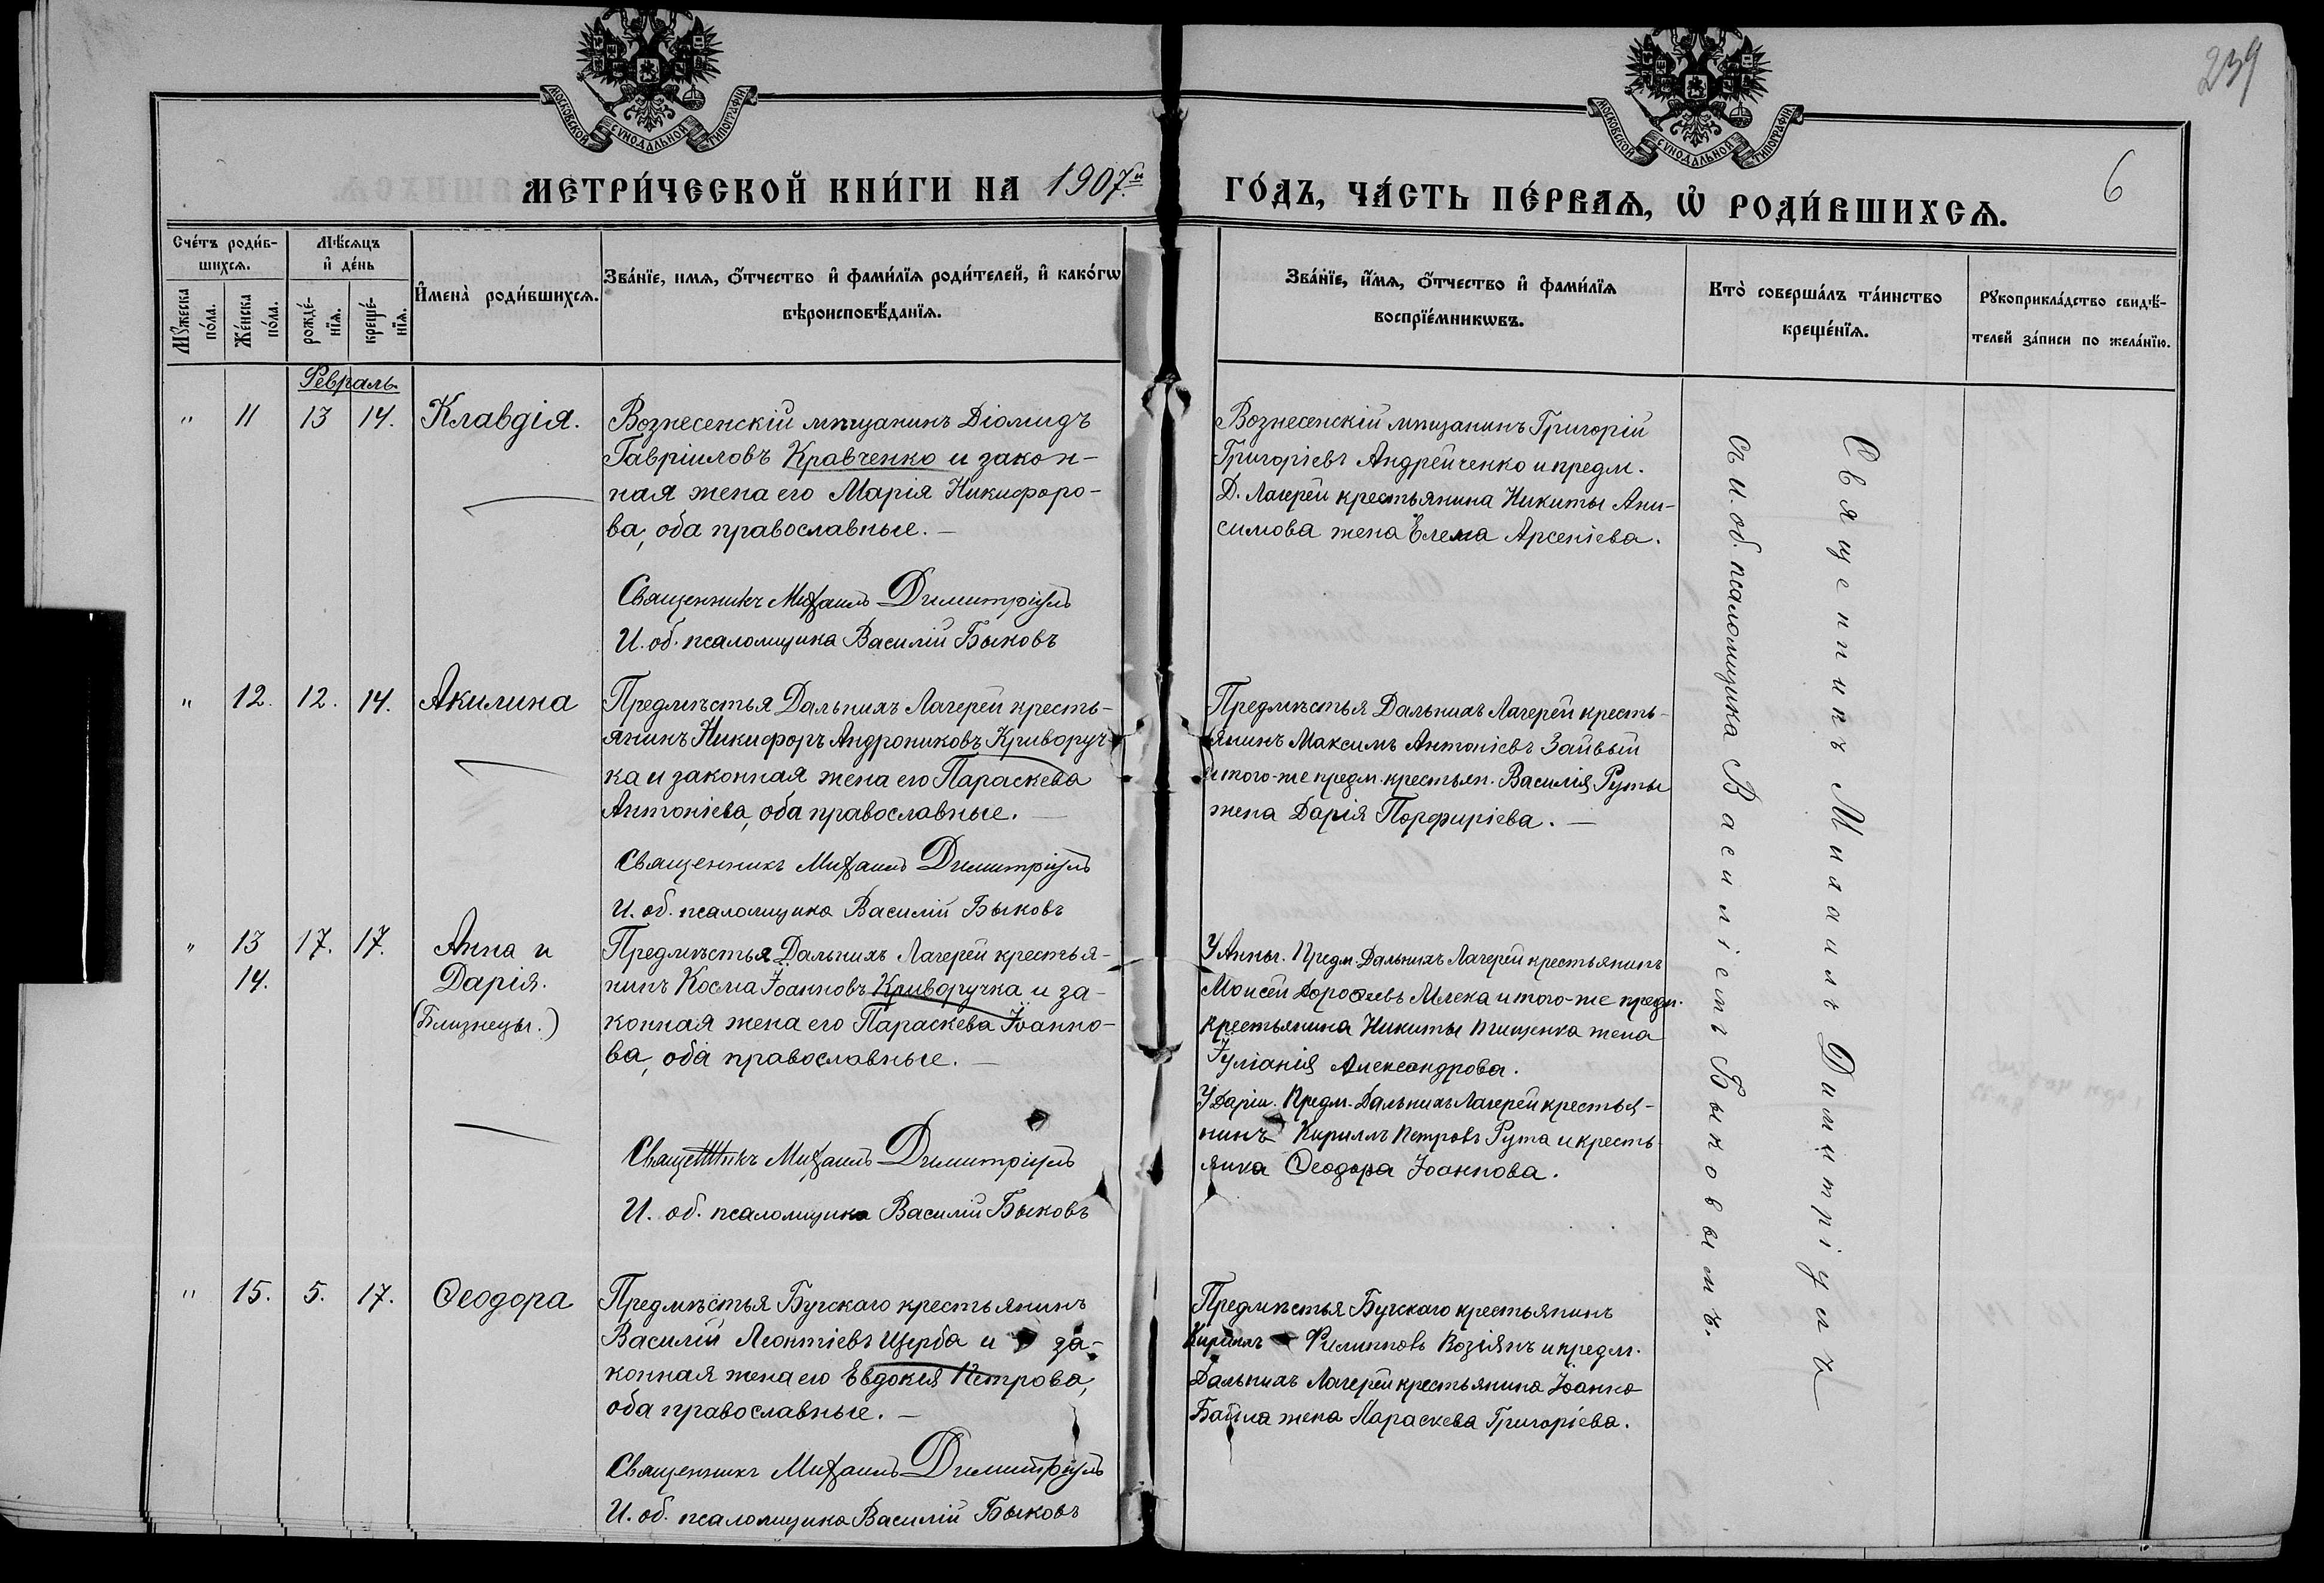 239
МОСКОВСКОЙ СУНОДАЛЬНОЙ ТИПОГРАФІИ
МОСКОВСКОЙ СУНОДАЛЬНОЙ ТИПОГРАФІИ
6
МЕТРИ́ЧЕСКОЙ КНИ́ГИ НА 1907.й ГО́ДЪ, ЧА́СТЬ ПЕ́РВАѦ, Ѡ҆ РОДИ́ВШИХСѦ.
Сче́тъ роди́в-
шихсѧ.
Мѹ́жеска
по́ла.
Же́нска
по́ла.
Мѣ́сѧцъ
и҆ де́нь
рожде́-
нїѧ.
креще́-
нїѧ.
И҆мена̀ роди́вшихсѧ.
Зва́нїе, имѧ, ѻ҆́тчество и҆ фами́лїѧ роди́телей, и҆ како́гѡ
вѣроисповѣ́данїѧ.
Зва́нїе, и҆́мѧ, ѻ҆́тчество и҆ фами́лїѧ
воспрїе́мникѡвъ.
Кто̀ соверша́лъ та́инство
креще́нїѧ.
Рѹкоприкла́дство свидѣ́-
телей за́писи по жела́нїю.
Февраль.
" 11 13 14. Клавдія.
Вознесенскій мѣщанинъ Діомидъ
Гавріиловъ Кравченко и закон-
ная жена его Марія Никифоро-
ва, оба православные. —
Священникъ Михаилъ Димитріуцъ
И. об. псаломщика Василій Быковъ
Вознесенскій мѣщанинъ Григорій
Григоріевъ Андрейченко и предм.
Д. Лагерей крестьянина Никиты Ани-
симова жена Елена Арсеніева.
" 12. 12. 14. Акилина
Предмѣстья Дальнихъ Лагерей кресть-
янинъ Никифоръ Андрониковъ Криворуч-
ка и законная жена его Параскева
Антоніева, оба православные. —
Священникъ Михаилъ Димитріуцъ
И. об. псаломщика Василій Быковъ
Предмѣстья Дальнихъ Лагерей кресть-
янинъ Максимъ Антоніевъ
и того-же предм. крестьян. Василія Руты
жена Дарія Порфиріева. —
" 13 17. 17. Анна и
14. Дарія.
(Близнецы.)
Предмѣстья Дальнихъ Лагерей крестья-
нинъ Косма Іоанновъ Криворучка и за-
конная жена его Параскева Іоанно-
ва, оба православные. —
Священникъ Михаилъ Димитріуцъ
И. об. псаломщика Василій Быковъ
У Анны. Предм. Дальнихъ Лагерей крестьянинъ
Моисей Дороѳеевъ Млека и того-же предм.
крестьянина Никиты жена
Іуліанія Александрова.
У Даріи. Предм. Дальнихъ Лагерей крестья-
нинъ Кириллъ Петровъ Рута и кресть-
янка Ѳеодора Іоаннова.
" 15. 5. 17. Ѳеодора
Предмѣстья Бугскаго крестьянинъ
Василій Леонтіевъ Щерба и за-
конная жена его Евдокія Петрова,
оба православные. —
Священникъ Михаилъ Димитріуцъ
И. об. псаломщика Василій Быковъ
Предмѣстья Бугскаго крестьянинъ
Кириллъ Филипповъ Козіянъ и предм.
Дальнихъ Лагерей крестьянина Іоанна
жена Параскева Григоріева.
Священникъ Михаилъ Димитріуцъ
съ и. об. псаломщика Василіемъ Быковымъ.